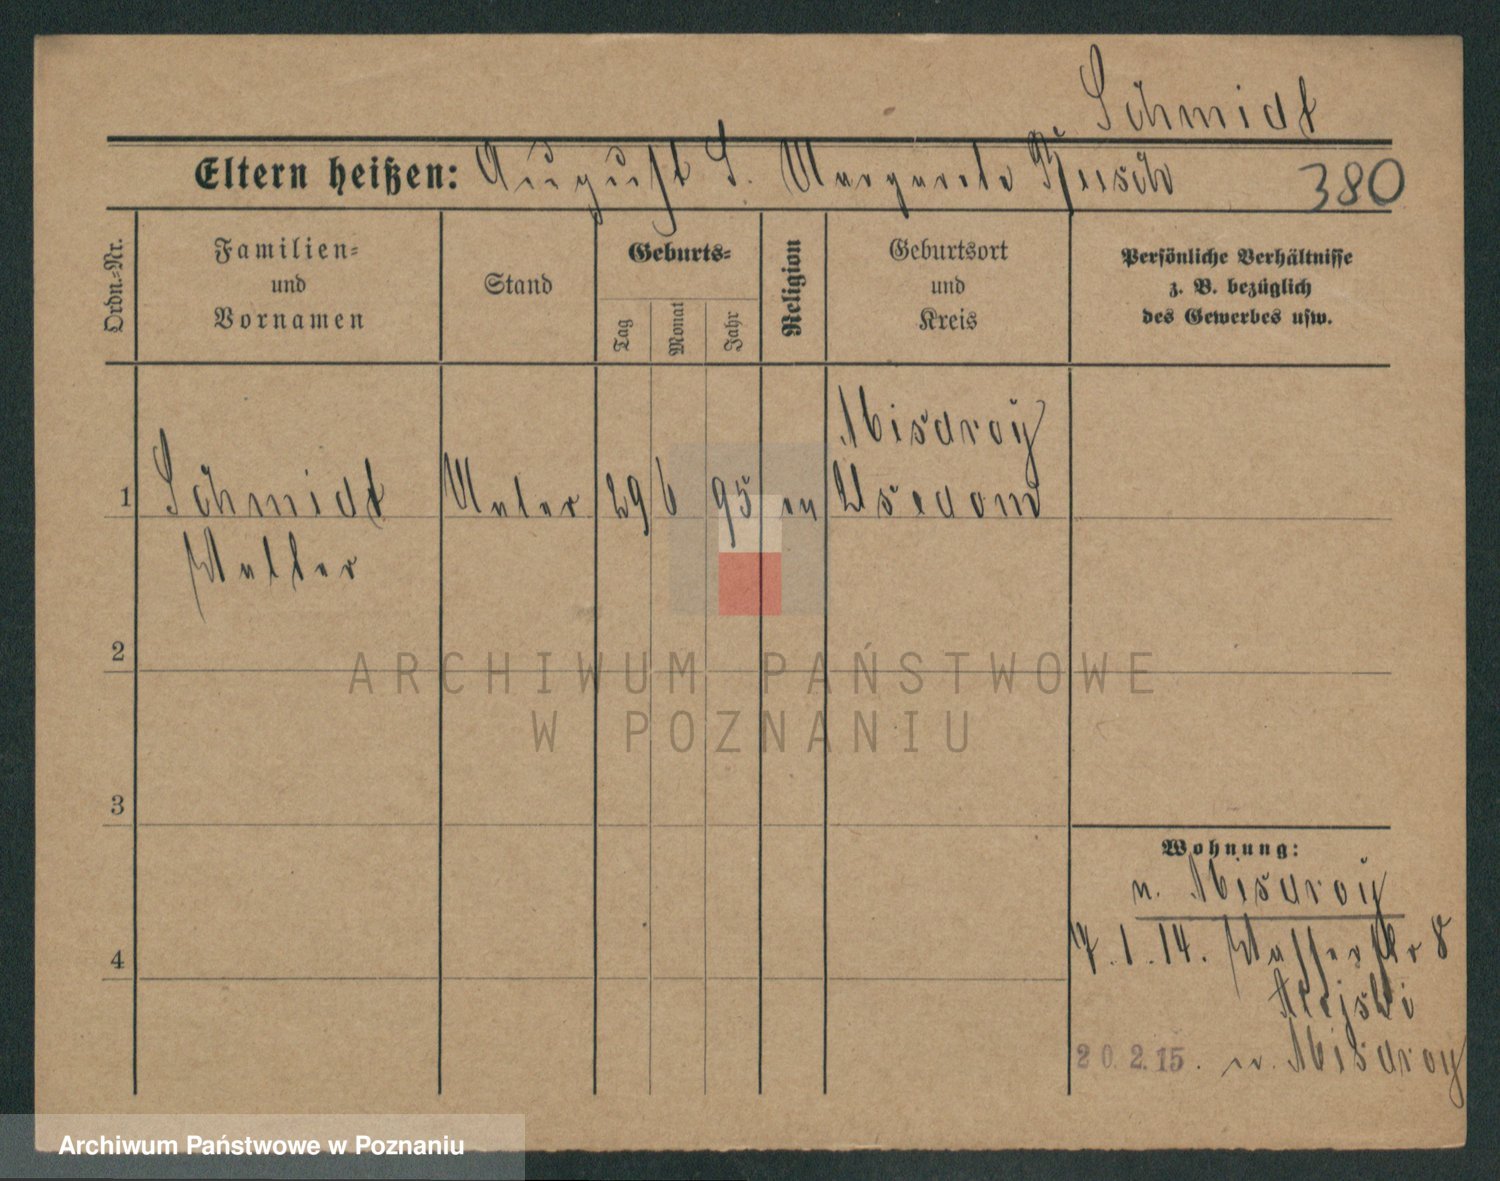 Schmidt
Eltern heißen: August S. Margarete Busch 380
Ordn.-Nr.
Familien-
und
Vornamen
Stand
Geburts-
Tag
Monat
Jahr
Religion
Geburtsort
und
Kreis
Persönliche Verhältnisse
z. B. bezüglich
des Gewerbes usw.
Misdroy
1 Schmidt 29 6 95 ev Usedom
Walter
2
3
4
Wohnung:
n. Misdroy
7.1.14. Wasserstr 8
20.2.15. n. Misdroy
ARCHIWUM PAŃSTWOWE
W POZNANIU
Archiwum Państwowe w Poznaniu